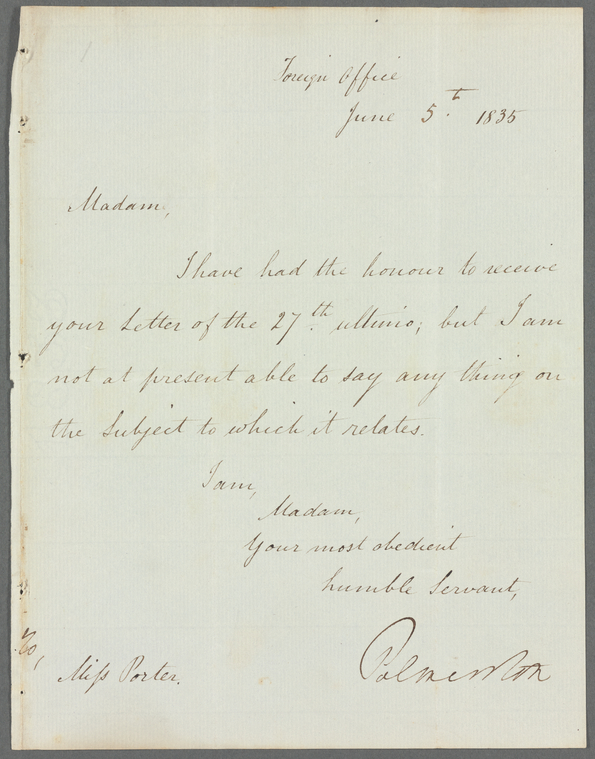 Foreign Office
June 5.t 1835
Madam,
I have had the honour to receive
your Letter of the 27.th ultimo; but I am
not at present able to say any thing on
the Subject to which it relates.
I am,
Madam,
Your most obedient
humble Servant,
Palmerston
To,
Miſs Porter.